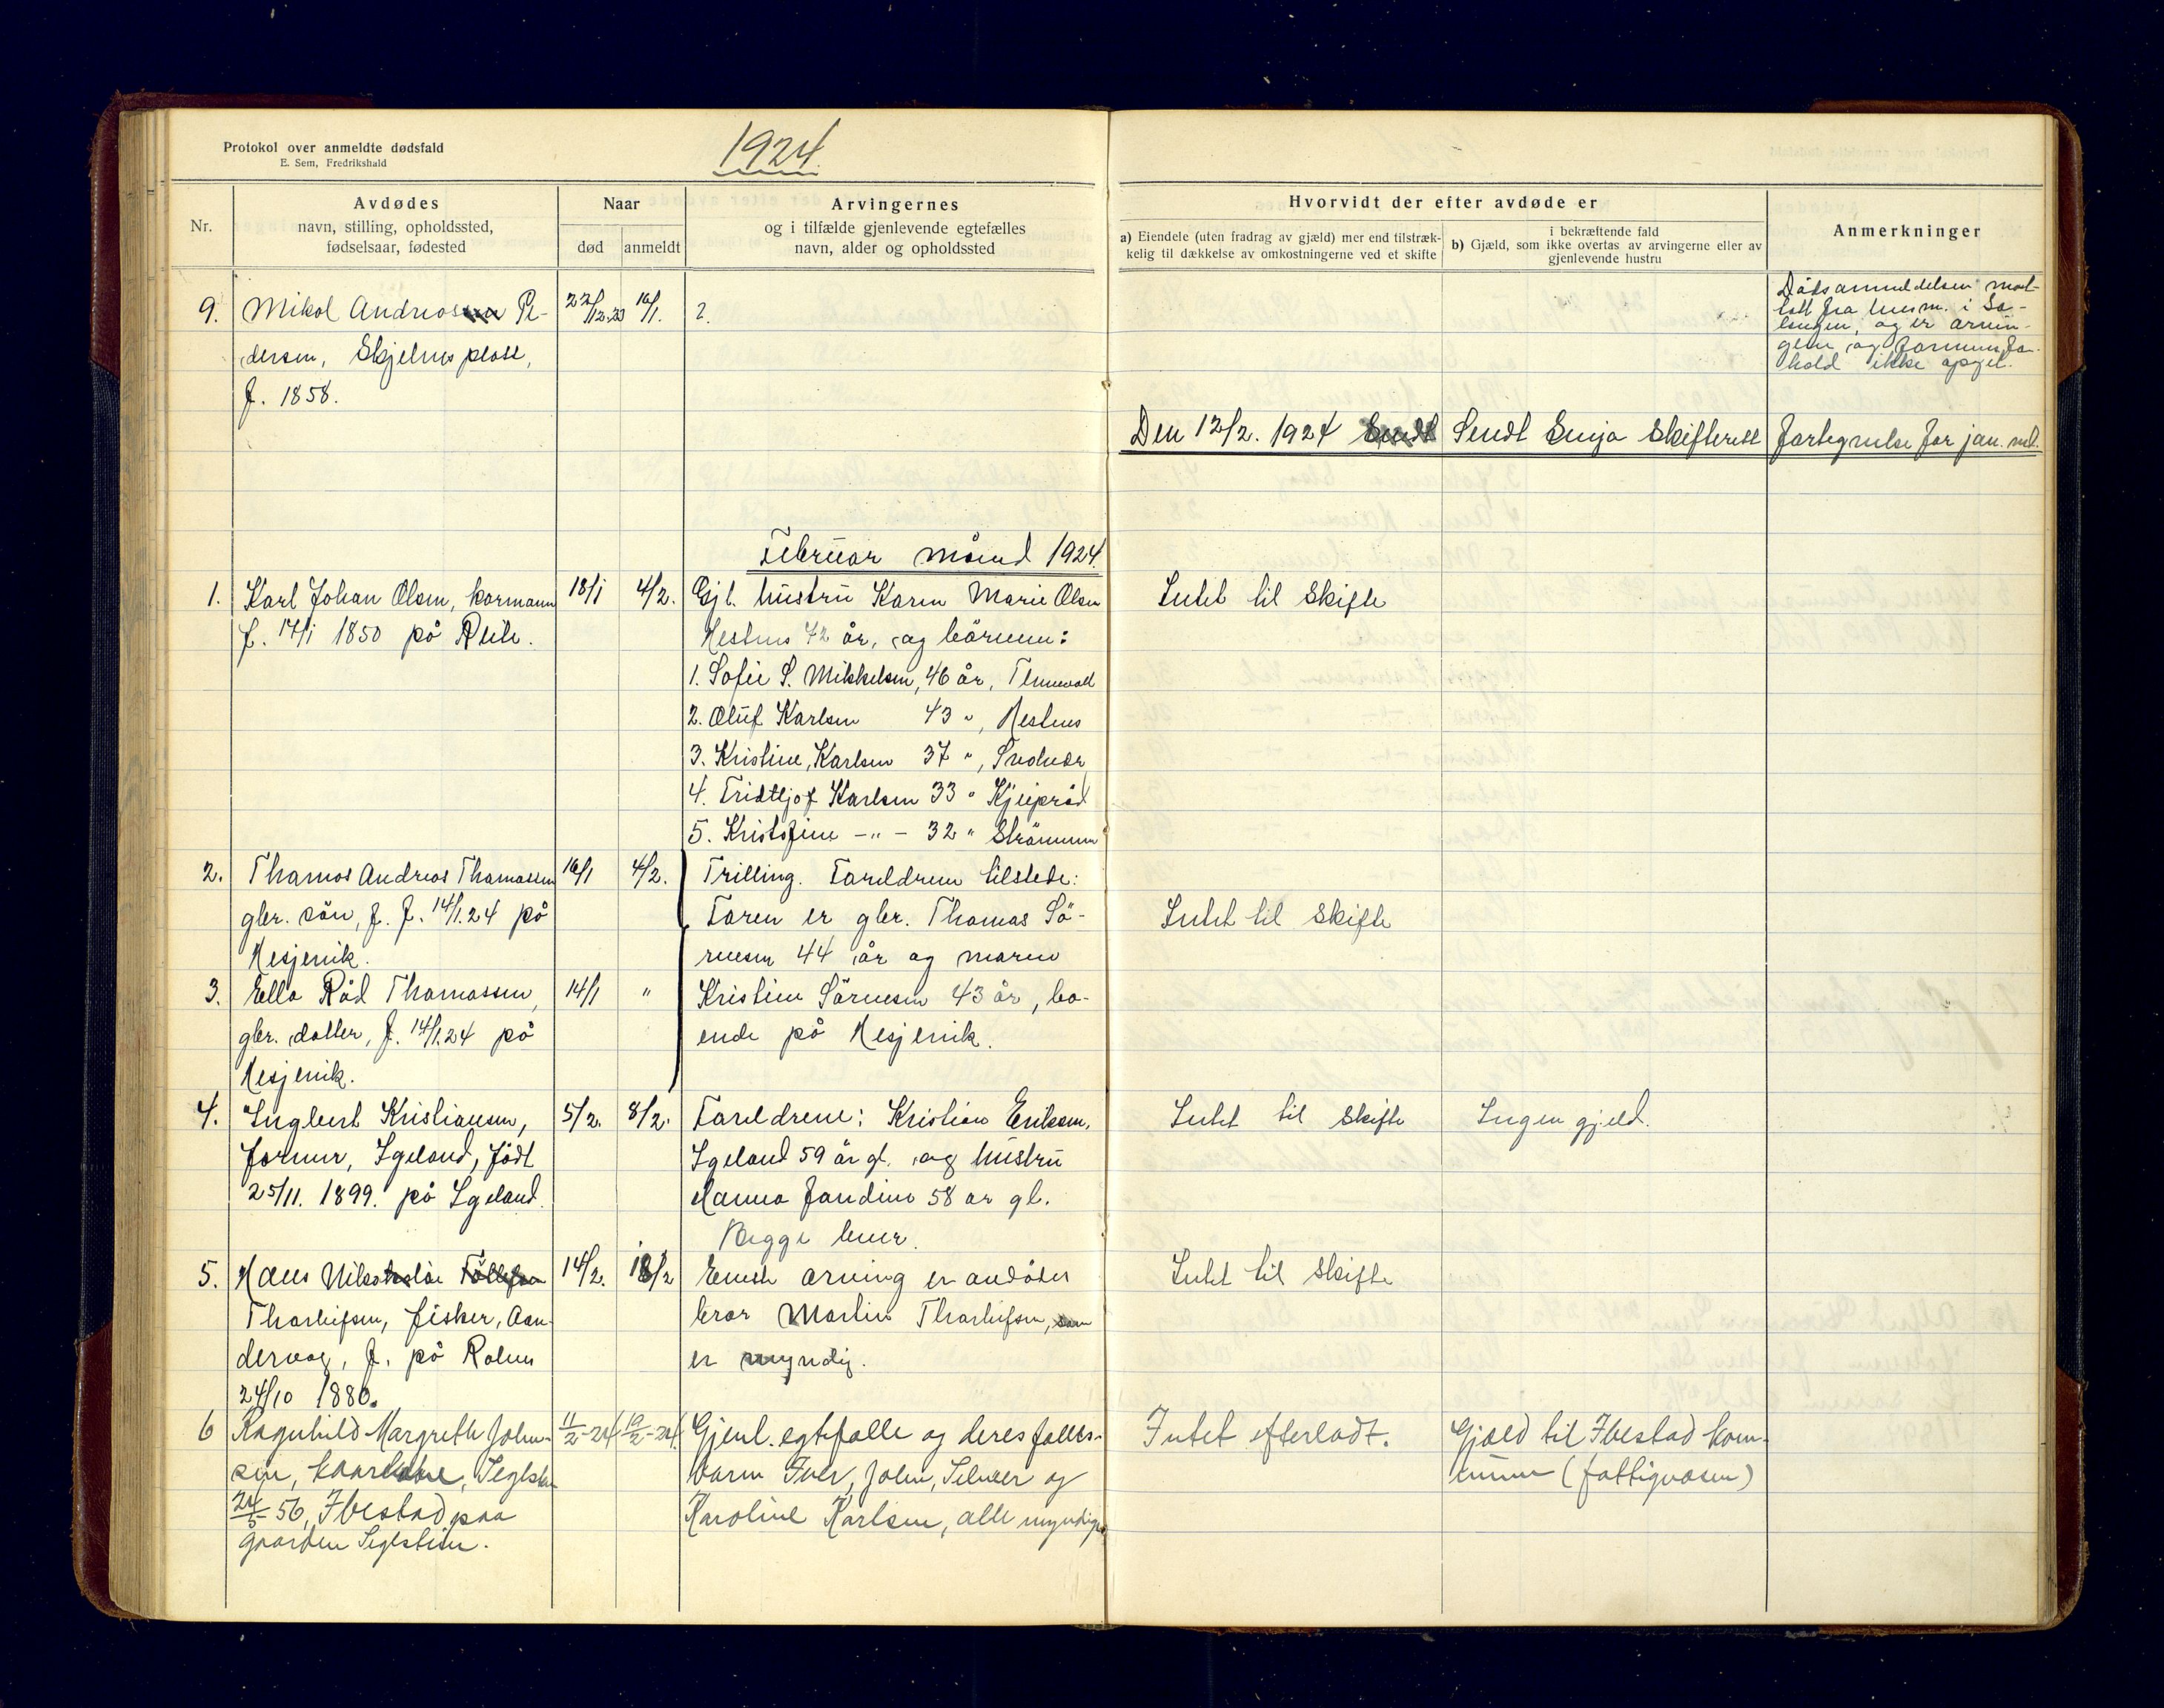 Protokol over anmeldte dødsfald
E. Sem, Fredrikshald
1924
Nr.
Avdødes
navn, stilling, opholdssted,
fødselsaar, fødested
Naar
død
anmeldt
Arvingernes
og i tilfælde gjenlevende egtefælles
navn, alder og opholdssted
Hvorvidt der efter avdøde er
a) Eiendele (uten fradrag av gjæld) mer end tilstræk-
kelig til dækkelse av omkostningerne ved et skifte
i bekræftende fald
b) Gjæld, som ikke overtas av arvingerne eller av
gjenlevende hustru
Anmerkninger
9. Mikal Andreas Pe- 22/12.23 16/1. ?.
dersen, Skjelnesplass,
f. 1858.
Dødsanmeldelsen mot-
tatt fra lensm. i Sa-
langen, og er arvin-
gene og formuesfor-
hold ikke opgit.
Den 12/2. 1924 Sendt Senja Skifterett fortegnelse for jan. md.
Februar måned 1924.
1. Karl Johan Olsen, kårmann 18/1 4/2. Gjl. hustru Karen Marie Olsen Intet til skifte
f. 14/1 1850 på Reite. Hestnes 72 år, og børnene:
1. Sofie S. Mikkelsen, 46 år, Tennevoll
2. Oluf Karlsen 43 ", Hestnes
3. Kristine Karlsen 37 ",
4. Fridtljof Karlsen 33 "
5. Kristofine -"- 32 "
2. Thomas Andreas Thomassen 16/1 4/2. Trilling. Foreldrene tilstede:
gbr. søn, f. 14/1.24 på Faren er gbr. Thomas Sö- Intet til skifte
Hesjevik. rensen 44 år og moren
3. Ella Råd Thomassen, 14/1 " Kristine Sörensen 43 år, bo-
gbr. datter, f. 14/1.24 på ende på Hesjevik.
Hesjevik.
4. Ingbert Kristiansen, 5/2. 8/2. Foreldrene: Kristian Eriksen, Intet til skifte Ingen gjeld.
former, Igeland, født Igeland 59 år gl. og hustru
25/11. 1899. på Igeland. Hanna Jandine 58 år gl.
Begge lever.
5. Hans Nikolai 14/2. 18/2 Eneste arving er avdødes Intet til skifte
Thorleifsen, fisker, Aan- bror Martin Thorleifsen, som
dervag, f. på Rolnes er myndig.
24/10 1880.
6 Ragnhild Margrethe John- 11/2-24 19/2-24. Gjenl. egtefælle og deres fælles- Intet efterladt. Gjæld til Ibestad kom-
sen, kaarkone, barn Iver, John, og mune (fattigvæsen)
24/5-56, Ibestad paa Karoline Karlsen, alle myndige
gaarden